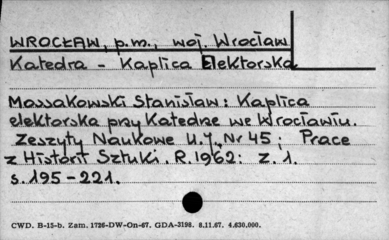 WROCŁAW, p.m., woj. Wrocław
Katedra - Kaplica Elektorska
Mossakowski Stanisław: Kaplica
elektorska przy Katedrze we Wrocławiu.
Zeszyty Naukowe U.J., Nr 45; Prace
z Historii Sztuki. R. 1962: z. 1.
s. 195-221.
CWD. B-15-b. Zam. 1726-DW-On-67. GDA-3198. 8.11.67. 4.630.000.